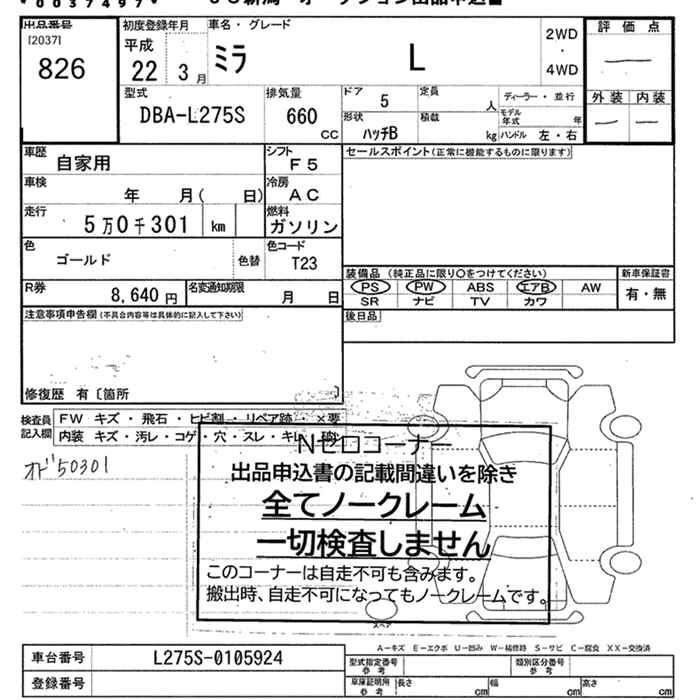 0037497
出品番号
[2037]
826
初度登録年月
平成
22 3 月
車名・グレード
ミラ L
2WD
・
4WD
評価点
—
外装 内装
— —
型式
DBA-L275S
排気量
660
CC
ドア
5
定員
人
ディーラー・並行
形状
ハッチB
積載
kg
モデル年式
年
ハンドル 左・右
車歴
自家用
シフト
F5
セールスポイント(正常に機能するものに限ります)
車検
年 月( 日)
冷房
AC
走行
5万0千301 km
燃料
ガソリン
色
ゴールド
色替
色コード
T23
装備品(純正品に限り○をつけてください)
新車保証書
PS PW ABS エアB AW
SR ナビ TV カワ
有・無
R券
8,640 円
名変通知期限
月 日
注意事項申告欄(不具合内容等は具体的に記入して下さい)
後日品
修復歴 有〔箇所 〕
検査員記入欄
FW キズ・飛石・ヒビ割・リペア跡・×要
内装 キズ・汚レ・コゲ・穴・スレ・キレ
オド50301
Nゼロコーナー
出品申込書の記載間違いを除き
全てノークレーム
一切検査しません
このコーナーは自走不可も含みます。
搬出時、自走不可になってもノークレームです。
スペア
A-キズ E-エクボ U-凹み W-補修跡 S-サビ C-腐食 XX-交換済
車台番号
L275S-0105924
型式指定番号
参考
類別区分番号
参考
登録番号
車庫証明用
参考
長さ cm 幅 cm 高さ cm